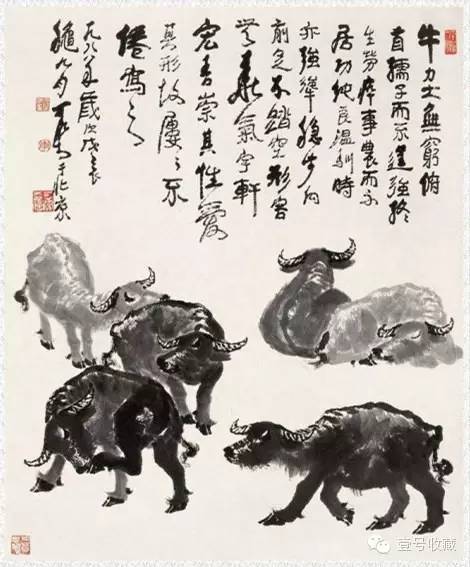 牛力大無窮俯
首孺子而不逞強終
生勞瘁事農而不
居功純良溫馴時
亦強犟穩步向
前足不踏空形容
無華氣宇軒
宏吾崇其性愛
其形故屢屢不
倦寫之
一九八八年歲次戊辰
龝九月可染于北京
壹号收藏